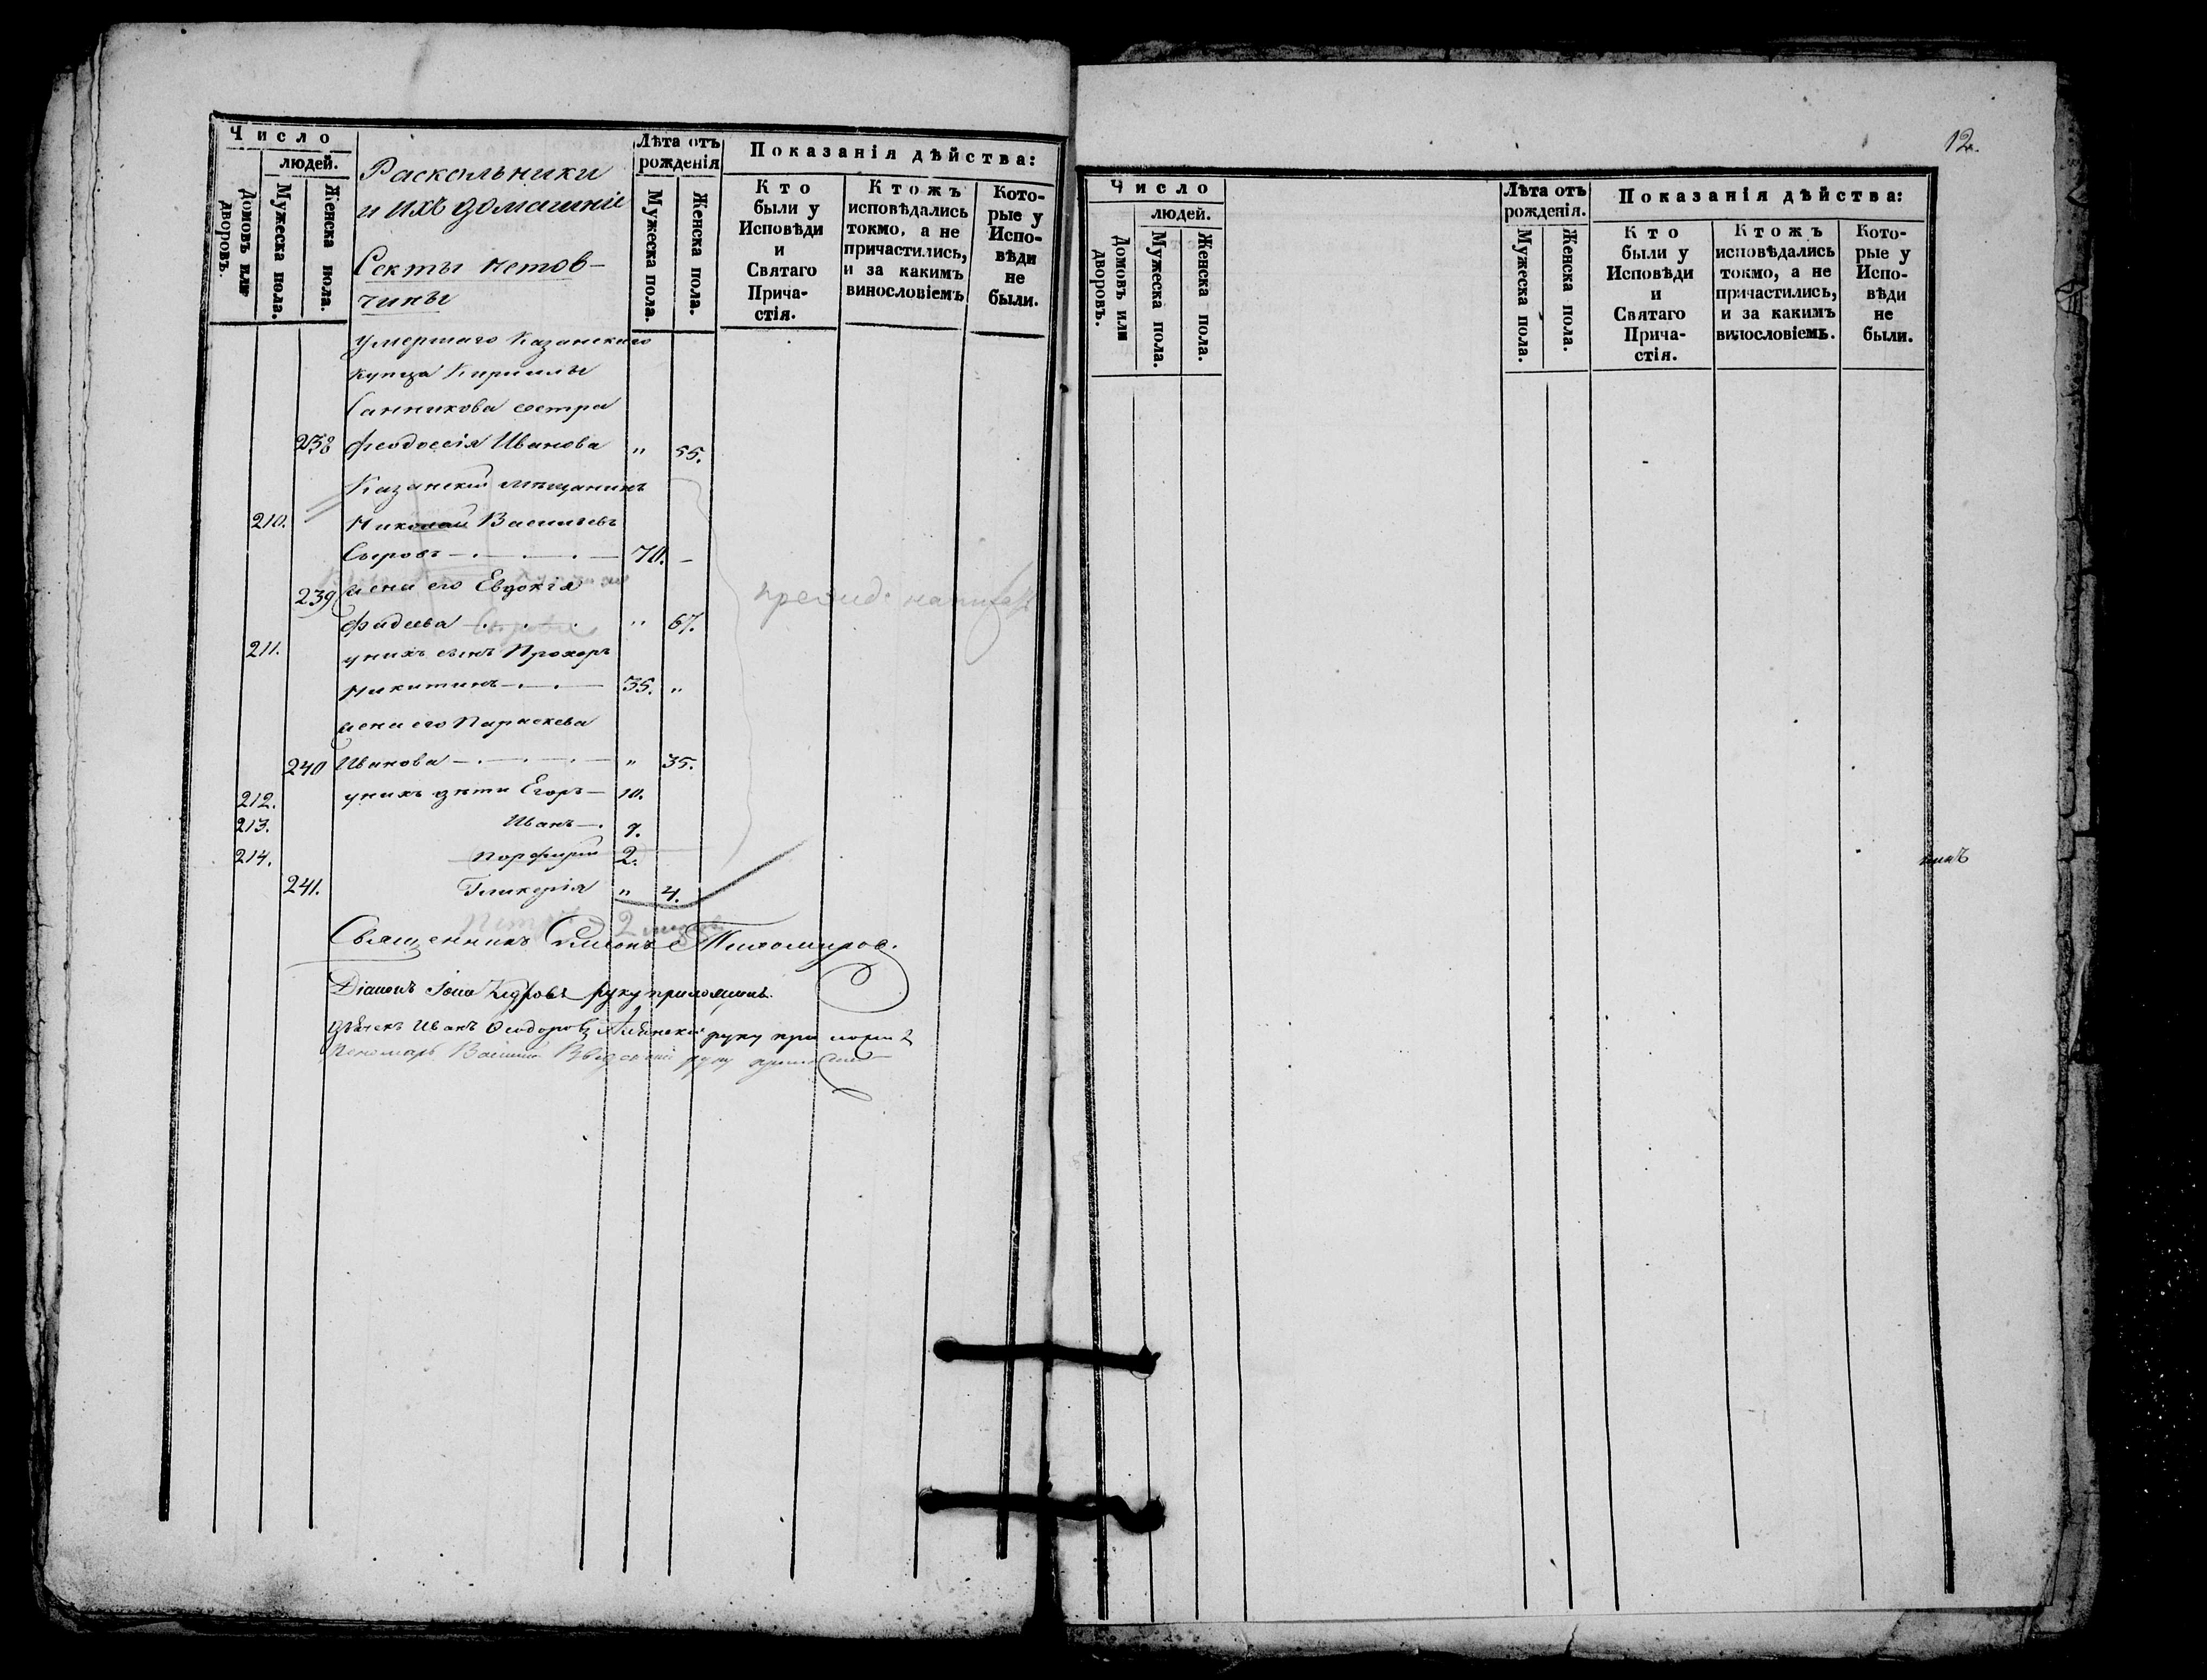 Число
людей.
Домовъ или дворовъ.
Мужеска пола.
Женска пола.
Раскольники
и ихъ домашніе
Секты нетов-
чины
Лѣта отъ
рожденія
Мужеска пола.
Женска пола.
Показанія дѣйства:
Кто
были у
Исповѣди
и
Святаго
Прича-
стія.
Ктожъ
исповѣдались
токмо, а не
причастились,
и за какимъ
винословіемъ
Кото-
рые у
Испо-
вѣди
не
были.
умершаго Казанскаго
купца Кириллы
Санникова сестра
238 Феодосія Иванова " 55.
Казанскій мѣщанинъ
210. Николай Васильевъ
Сыровъ — . — . — . — 70. —
239 жена его Евдокія
Фадеева — . — . — . " 67.
211. у нихъ сынъ Прохоръ
Никитинъ — . — . — 35. "
жена его Параскева
240 Иванова — . — . — . — " 35.
212. у нихъ дѣти Егоръ — 10.
213. Иванъ — . 7.
214. Порфирій 2.
241. Гликерія " 4.
Священникъ Симонъ Тихомировъ.
Діаконъ Іона Кедровъ руку приложилъ.
Дьячекъ Иванъ Феодоровъ руку приложилъ
Пономарь Василій руку приложилъ
12.
Число
людей.
Домовъ или дворовъ.
Мужеска пола.
Женска пола.
Лѣта отъ
рожденія.
Мужеска пола.
Женска пола.
Показанія дѣйства:
Кто
были у
Исповѣди
и
Святаго
Прича-
стія.
Ктожъ
исповѣдались
токмо, а не
причастились,
и за какимъ
винословіемъ.
Кото-
рые у
Испо-
вѣди
не
были.